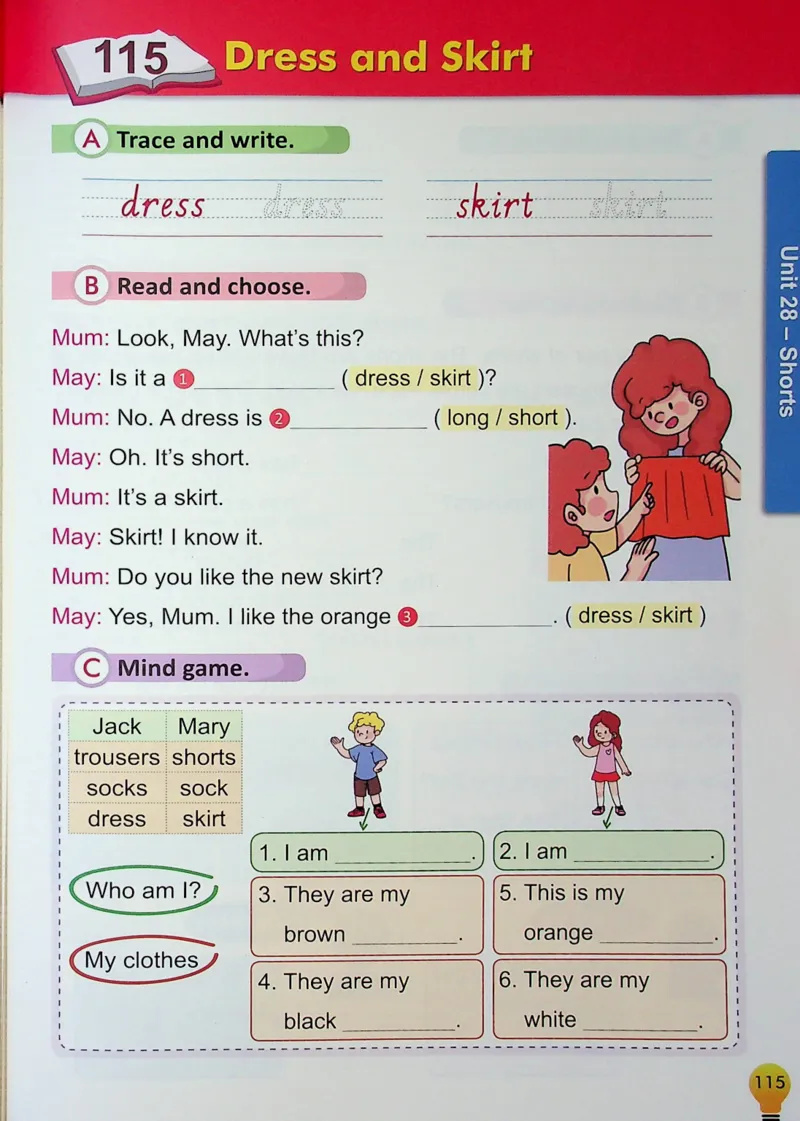 115 Dress and Skirt
A Trace and write.
dress dress skirt skirt
B Read and choose.
Mum: Look, May. What's this?
May: Is it a 1____________ ( dress / skirt )?
Mum: No. A dress is 2____________ ( long / short ).
May: Oh. It's short.
Mum: It's a skirt.
May: Skirt! I know it.
Mum: Do you like the new skirt?
May: Yes, Mum. I like the orange 3____________. ( dress / skirt )
C Mind game.
Jack Mary
trousers shorts
socks sock
dress skirt
Who am I?
My clothes
1. I am ____________.
3. They are my
brown _________.
4. They are my
black __________.
2. I am ____________.
5. This is my
orange __________.
6. They are my
white __________.
Unit 28 – Shorts
115